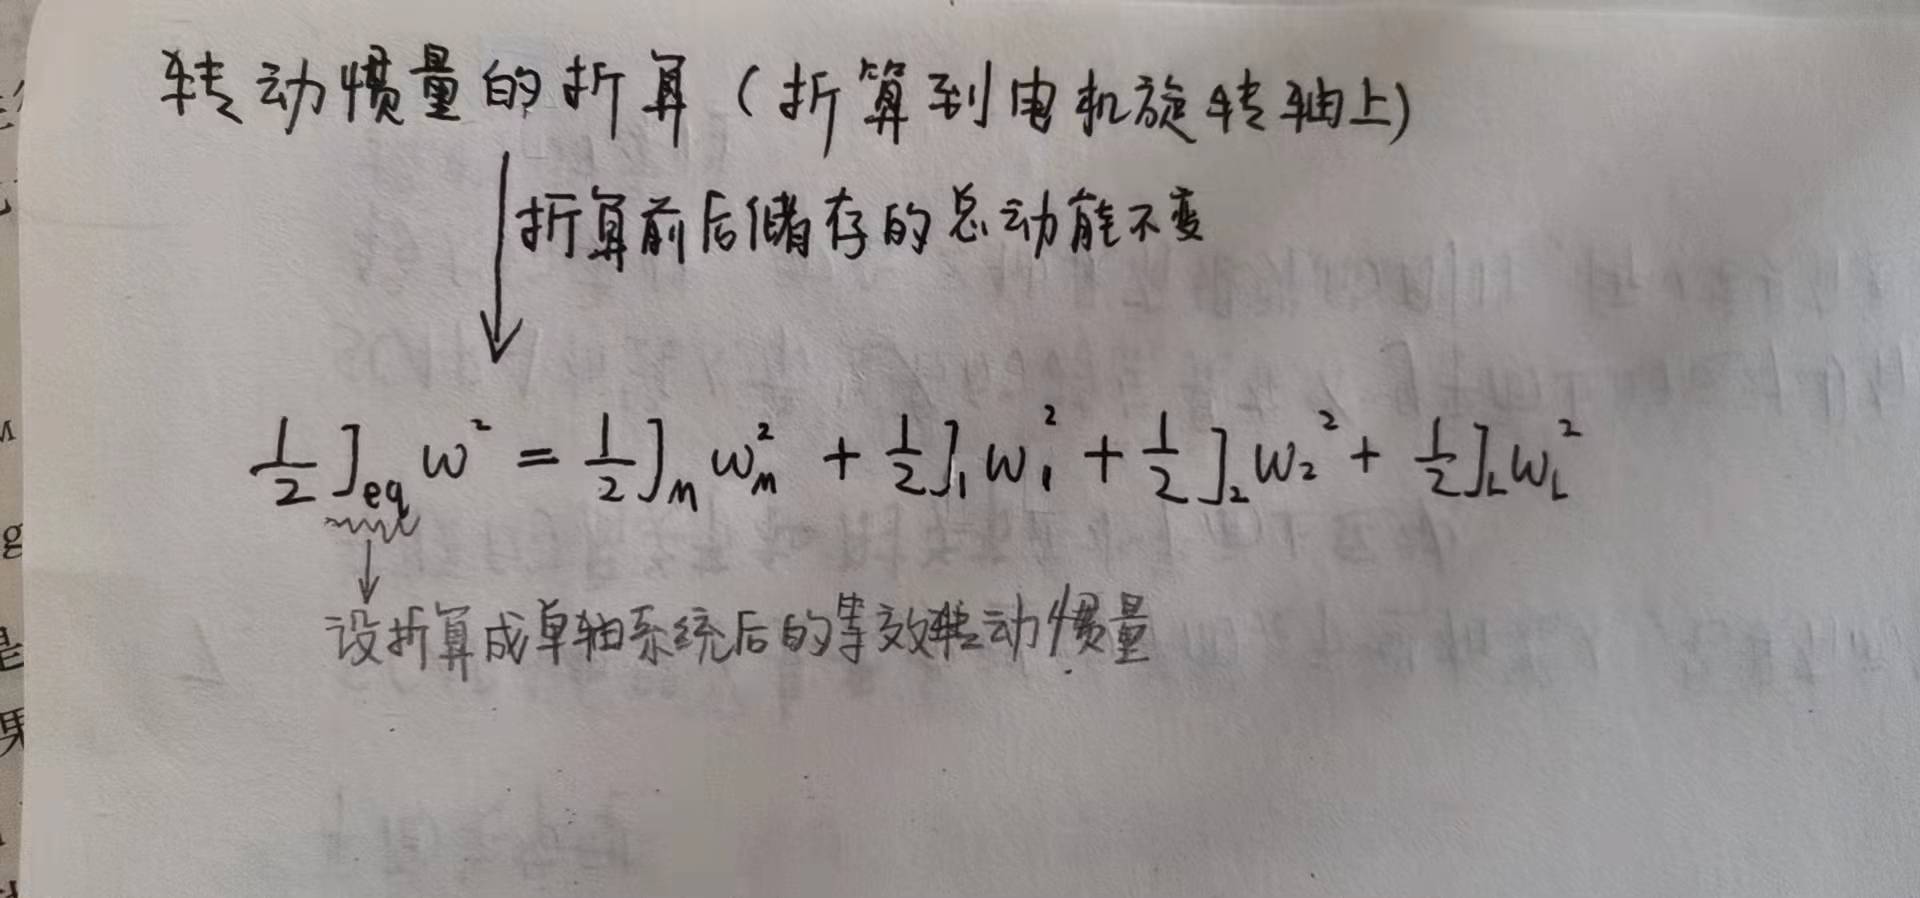 转动惯量的折算（折算到电机旋转轴上）
折算前后储存的总动能不变
½J_eq ω² = ½J_m ω_m² + ½J₁ω₁² + ½J₂ω₂² + ½J_Lω_L²
设折算成单轴系统后的等效转动惯量